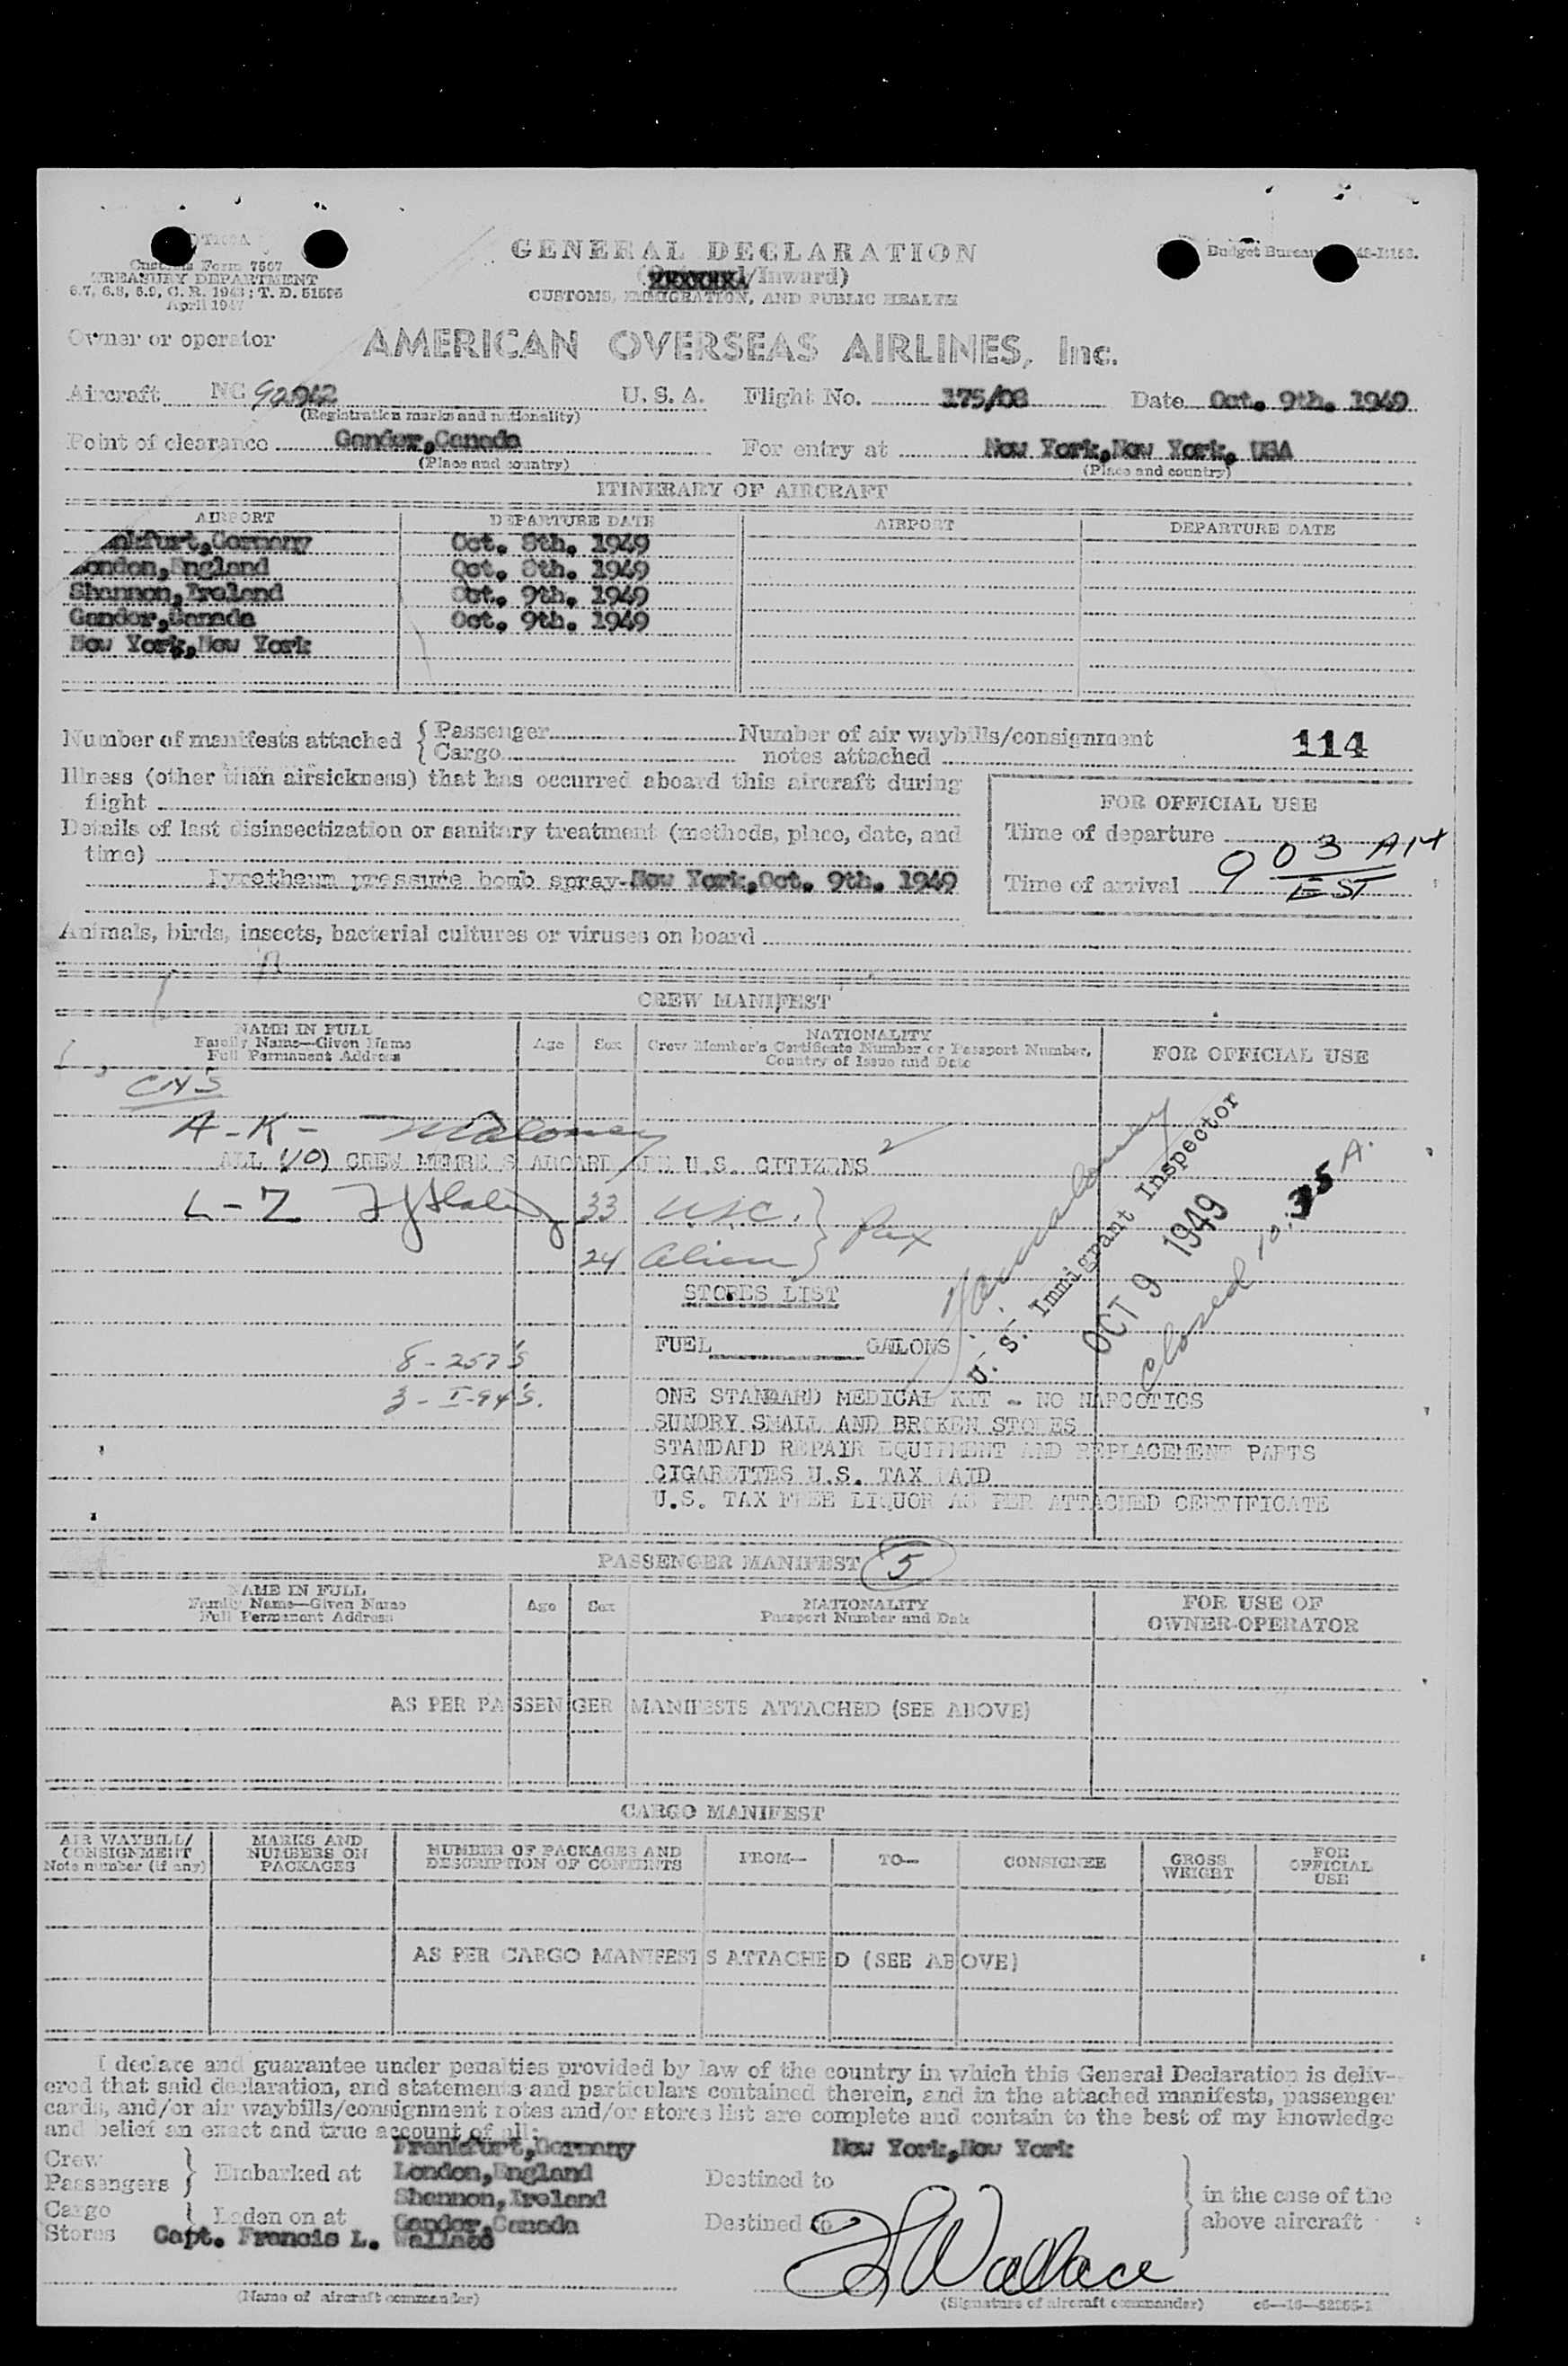 GENERAL DECLARATION
/Inward)
CUSTOMS, IMMIGRATION, AND PUBLIC HEALTH
Customs Form 7507
TREASURY DEPARTMENT
6.7, 6.8, 6.9, C. R. 1943; T. D. 51595
April 1947
Budget Bureau
Owner or operator AMERICAN OVERSEAS AIRLINES, Inc.
Aircraft NC U. S. A. Flight No. 175/08 Date Oct. 9th. 1949
(Registration marks and nationality)
Point of clearance Gander,Canada For entry at New York,New York, USA
(Place and country) (Place and country)
ITINERARY OF AIRCRAFT
AIRPORT DEPARTURE DATE AIRPORT DEPARTURE DATE
nkfurt,Germany Oct. 8th. 1949
London,England Oct. 8th. 1949
Shannon,Ireland Oct. 9th. 1949
Gander,Canada Oct. 9th. 1949
New York,New York
Number of manifests attached { Passenger Number of air waybills/consignment
Cargo notes attached 114
Illness (other than airsickness) that has occurred aboard this aircraft during
flight
Details of last disinsectization or sanitary treatment (methods, place, date, and
time)
Pyretheum pressure bomb spray-New York,Oct. 9th. 1949
FOR OFFICIAL USE
Time of departure
Time of arrival 9 03 AM
EST
Animals, birds, insects, bacterial cultures or viruses on board
CREW MANIFEST
NAME IN FULL
Family Name—Given Name
Full Permanent Address
Age Sex
NATIONALITY
Crew Member's Certificate Number or Passport Number,
Country of Issue and Date
FOR OFFICIAL USE
A-K- Maloney
ALL (10) CREW MEMBERS ABOARD ARE U.S. CITIZENS
L-Z 33 USC. } Pax
24 Alien
STORES LIST
FUEL GALONS
8-257's
3-I-94's.
ONE STANDARD MEDICAL KIT - NO NARCOTICS
SUNDRY SMALL AND BROKEN STORES
STANDARD REPAIR EQUIPMENT AND REPLACEMENT PARTS
CIGARETTES U.S. TAX PAID
U.S. TAX FREE LIQUOR AS PER ATTACHED CERTIFICATE
U. S. Immigrant Inspector
OCT 9 1949
Closed 10:35 A.
PASSENGER MANIFEST 5
NAME IN FULL
Family Name—Given Name
Full Permanent Address
Age Sex
NATIONALITY
Passport Number and Date
FOR USE OF
OWNER-OPERATOR
AS PER PASSENGER MANIFESTS ATTACHED (SEE ABOVE)
CARGO MANIFEST
AIR WAYBILL/
CONSIGNMENT
Note number (if any)
MARKS AND
NUMBERS ON
PACKAGES
NUMBER OF PACKAGES AND
DESCRIPTION OF CONTENTS
FROM— TO— CONSIGNEE
GROSS
WEIGHT
FOR
OFFICIAL
USE
AS PER CARGO MANIFESTS ATTACHED (SEE ABOVE)
I declare and guarantee under penalties provided by law of the country in which this General Declaration is deliv-
ered that said declaration, and statements and particulars contained therein, and in the attached manifests, passenger
cards, and/or air waybills/consignment notes and/or stores list are complete and contain to the best of my knowledge
and belief an exact and true account of all:
Crew
Passengers } Embarked at
Cargo
Stores } Laden on at
Frankfurt,Germany
London,England
Shannon,Ireland
Gander,Canada
New York,New York
Destined to
Destined to
in the case of the
above aircraft
Capt. Francis L. Wallace
(Name of aircraft commander)
Wallace
(Signature of aircraft commander)